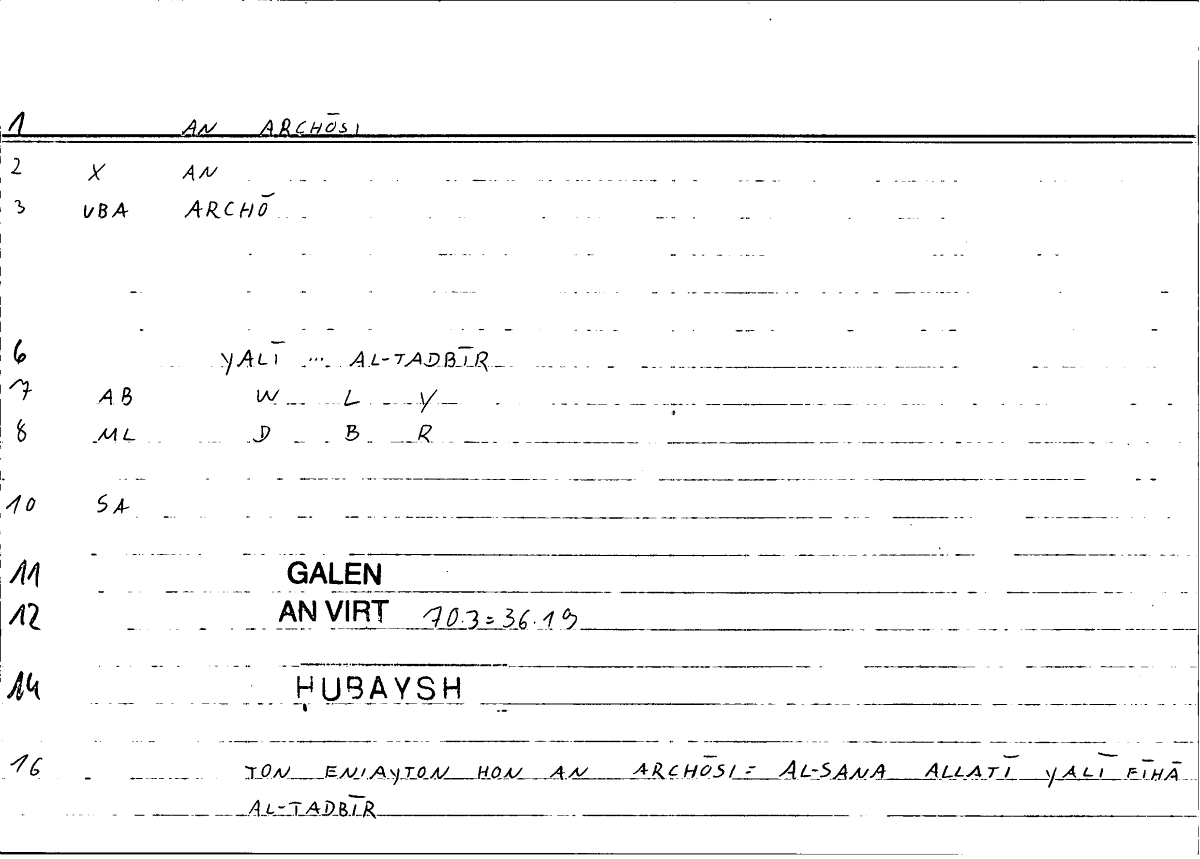 1 AN ARCHŌSI
2 X AN
3 VBA ARCHŌ
6 YALĪ ... AL-TADBĪR
7 AB W L Y
8 ML D B R
10 SA
11 GALEN
12 AN VIRT 70.3=36.19
14 ḤUBAYSH
16 TON ENIAYTON HON AN ARCHŌSI = AL-SANA ALLATĪ YALĪ FĪHĀ
AL-TADBĪR